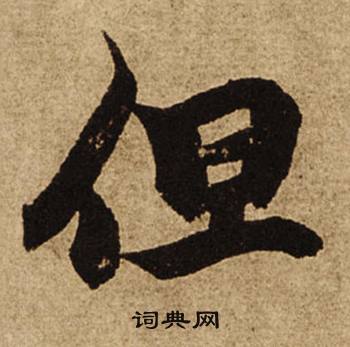 但
词典网